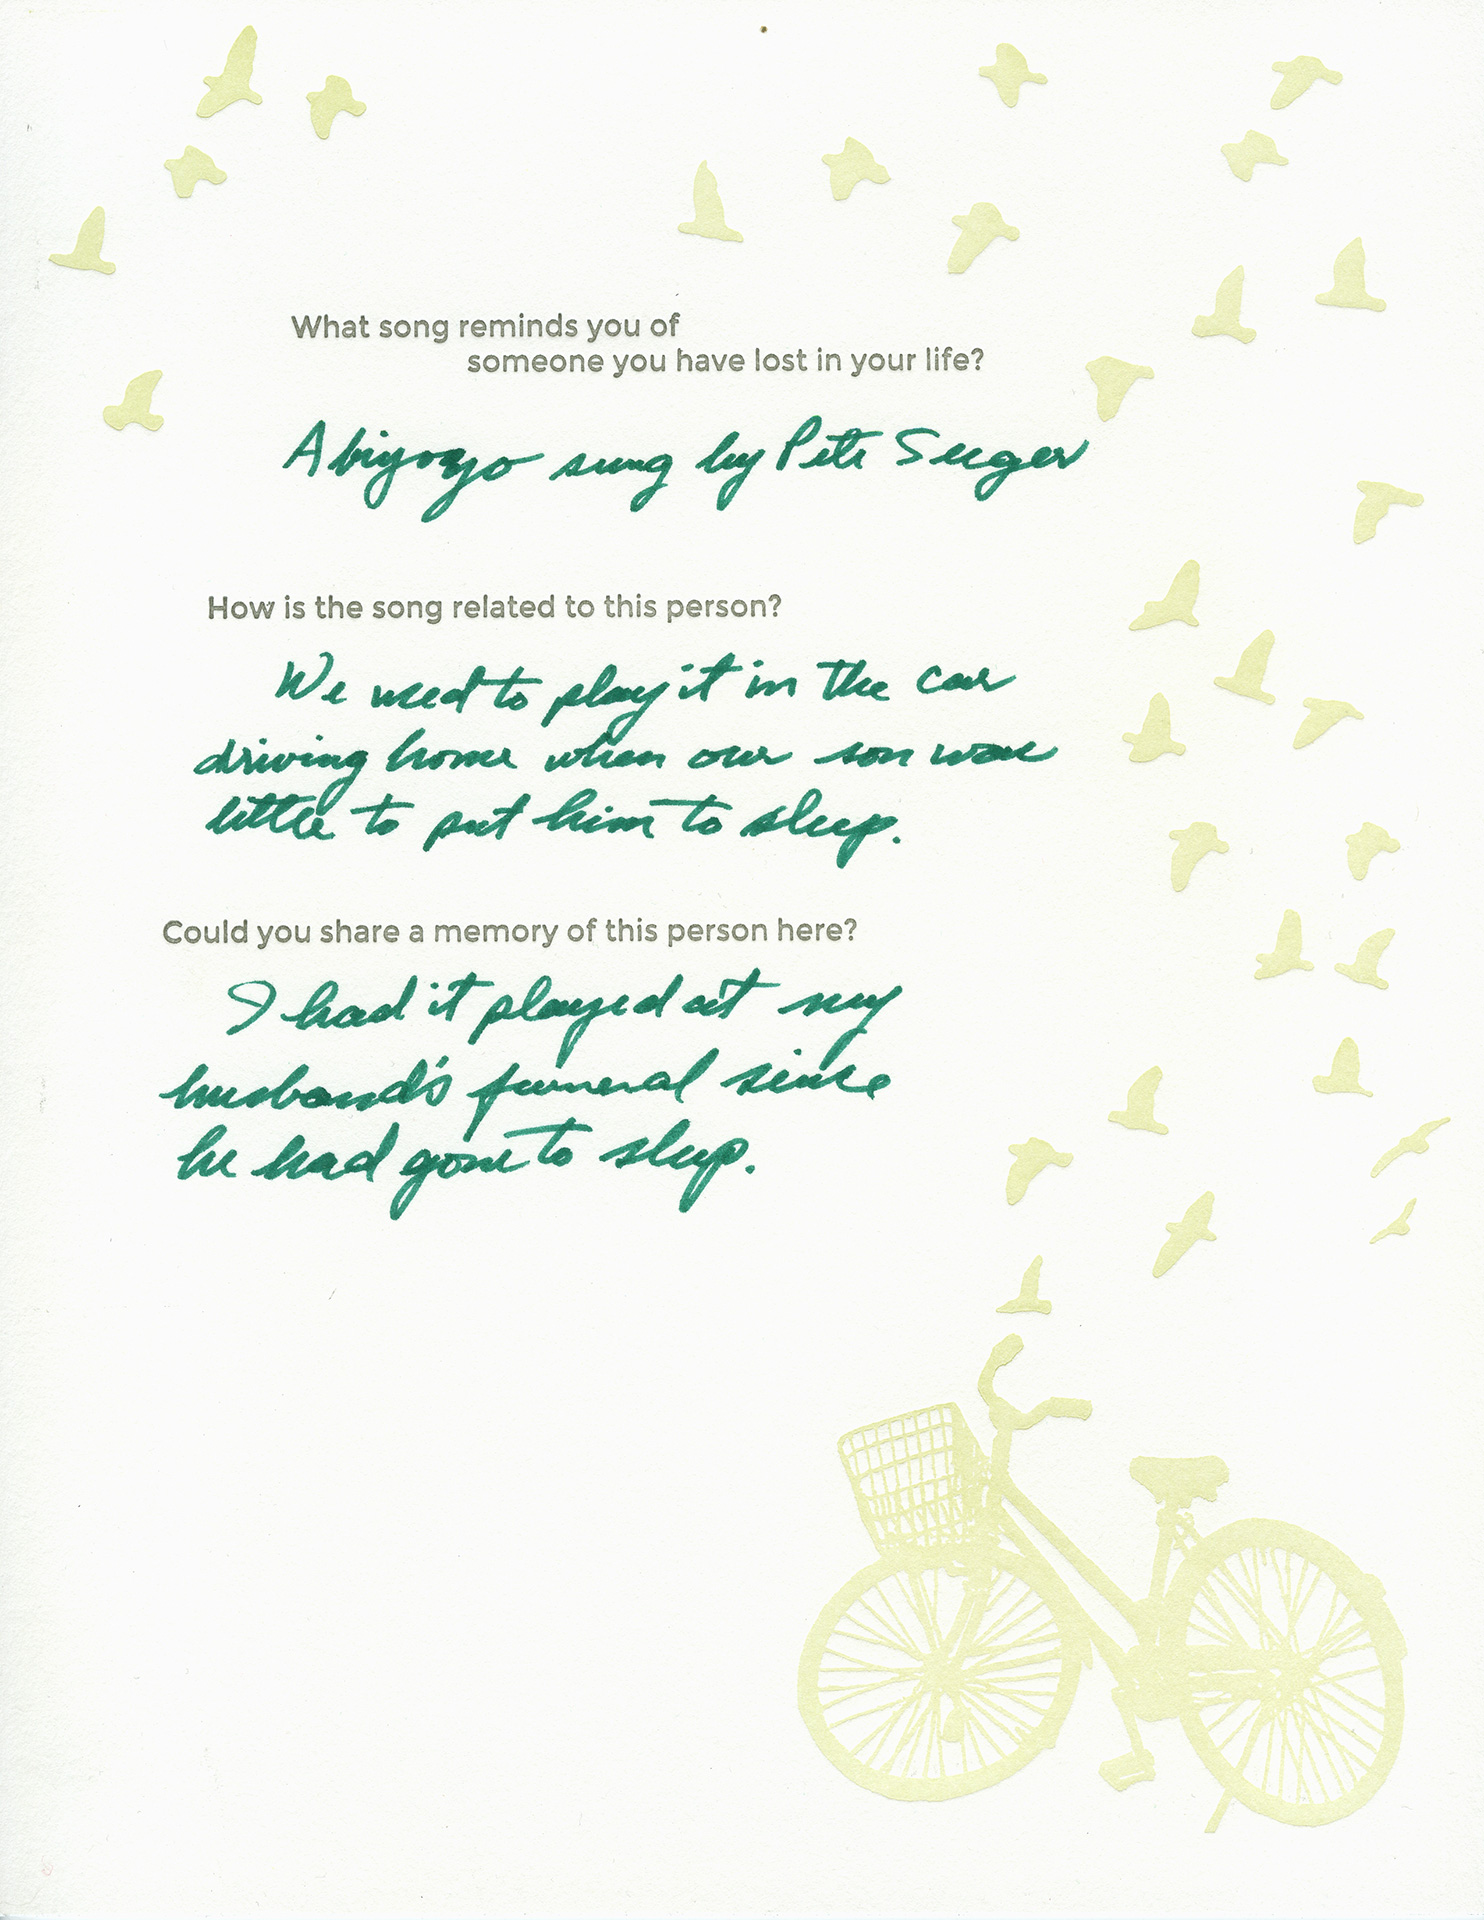 What song reminds you of
someone you have lost in your life?
Abiyoyo sung by Pete Seeger
How is the song related to this person?
We used to play it in the car
driving home when our son was
little to put him to sleep.
Could you share a memory of this person here?
I had it played at my
husband's funeral since
he had gone to sleep.